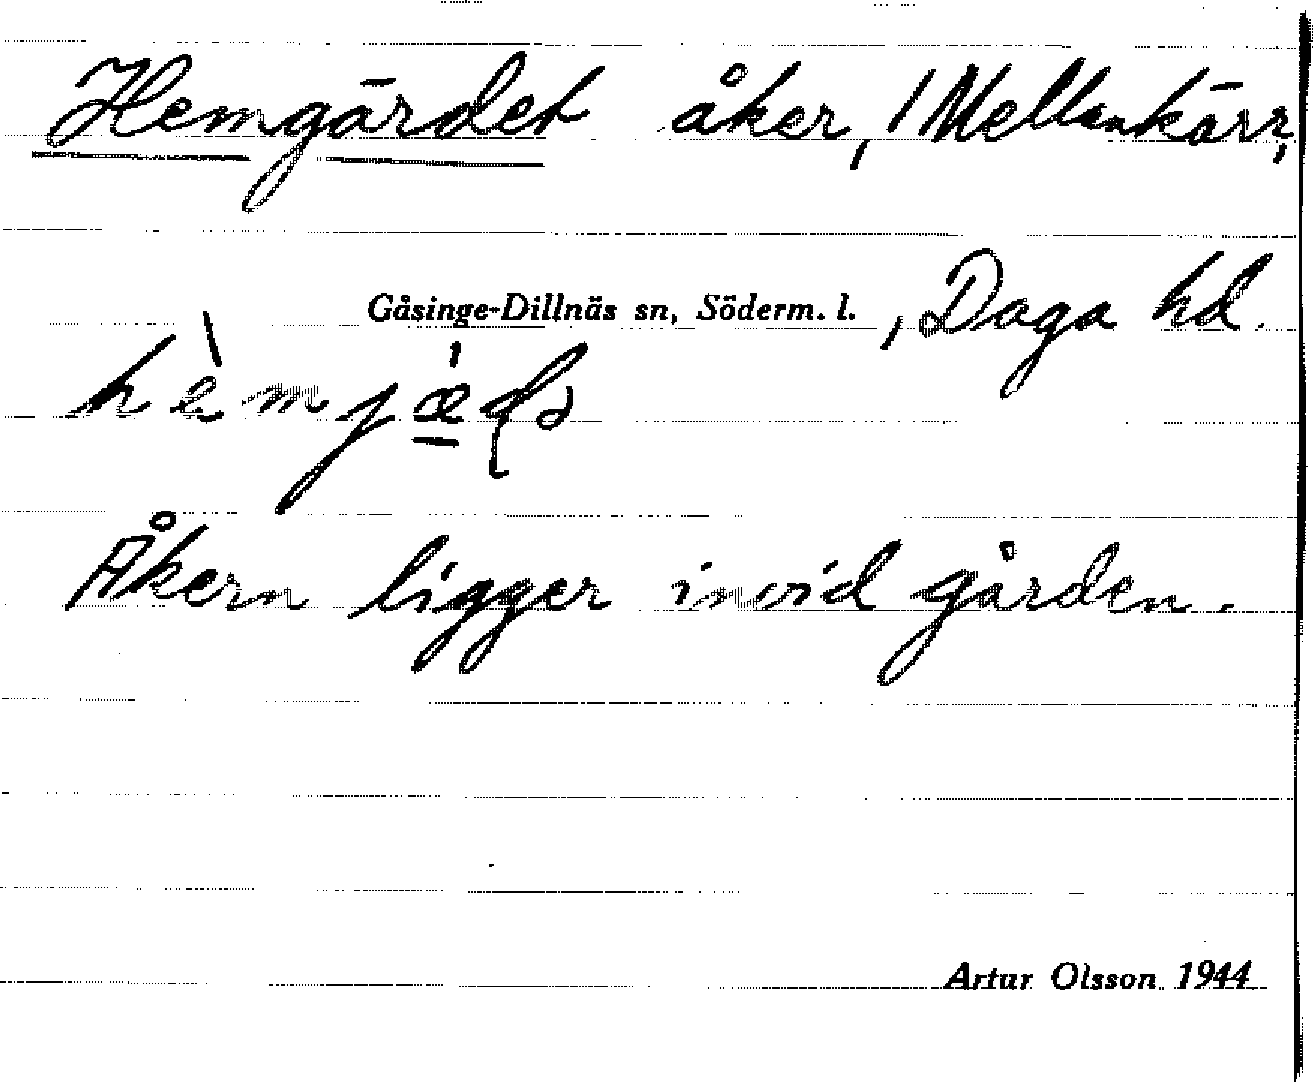 Hemgärdet åker, / Mellankärr,
Gåsinge-Dillnäs sn, Söderm. l. , Daga hd.
Åkern ligger invid gården.
Artur Olsson 1944